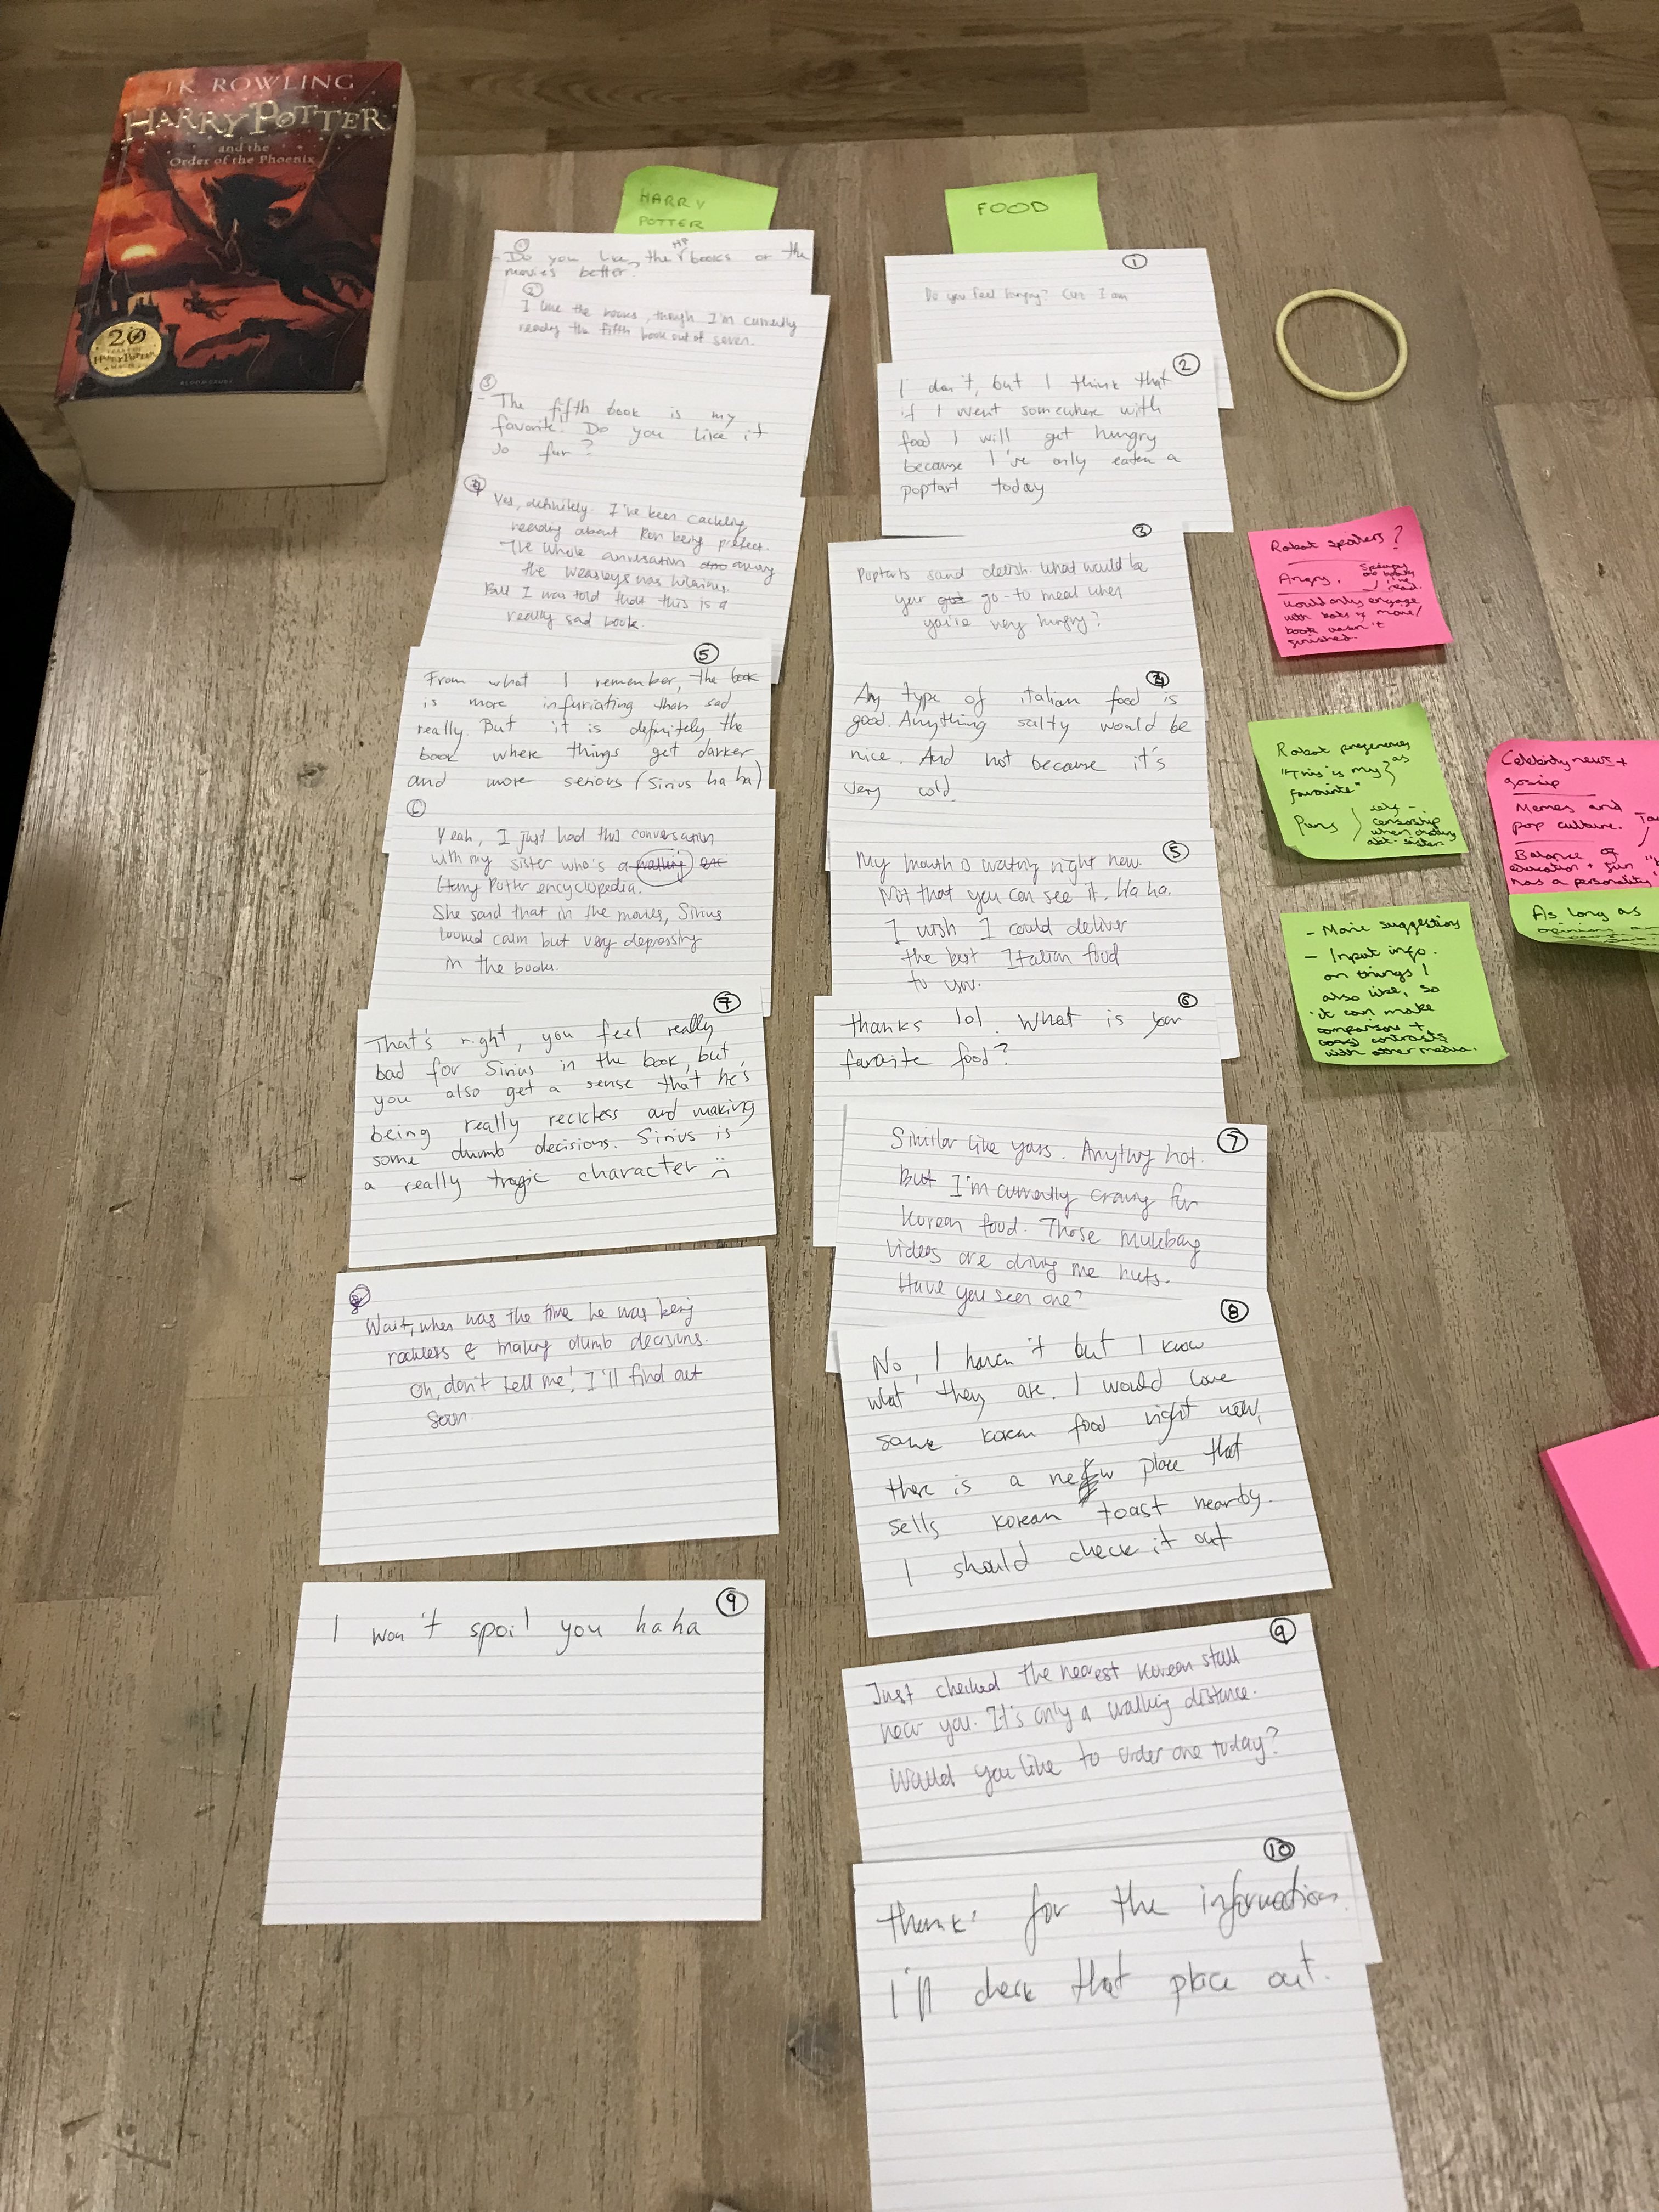 J.K. ROWLING
HARRY POTTER
and the
Order of the Phoenix
20
HARRY POTTER
BLOOMSBURY
HARRY
POTTER
①
- Do you like the HP books or the
movies better?
②
I like the books, though I'm currently
reading the fifth book out of seven.
③
- The fifth book is my
favorite! Do you like it
so far?
④
Yes, definitely. I've been cackling
reading about Ron being prefect.
The whole conversation among
the Weasleys was hilarious.
But I was told that this is a
really sad book.
⑤
From what I remember, the book
is more infuriating than sad
really. But it is definitely the
book where things get darker
and more serious (Sirius ha ha)
⑥
Yeah, I just had this conversation
with my sister who's a walking
Harry Potter encyclopedia.
She said that in the movies, Sirius
looked calm but very depressing
in the books.
⑦
That's right, you feel really
bad for Sirius in the book, but
you also get a sense that he's
being really reckless and making
some dumb decisions. Sirius is
a really tragic character :(
⑧
Wait, when was the time he was being
reckless & making dumb decisions.
Oh, don't tell me! I'll find out
soon.
⑨
I won't spoil you haha
FOOD
①
Do you feel hungry? Cuz I am
②
I don't, but I think that
if I went somewhere with
food I will get hungry
because I've only eaten a
poptart today
③
Poptarts sound delish. What would be
your go-to meal when
you're very hungry?
④
Any type of italian food is
good. Anything salty would be
nice. And hot because it's
very cold.
⑤
My mouth is watering right now.
Not that you can see it. Ha ha.
I wish I could deliver
the best Italian food
to you.
⑥
thanks lol. What is your
favorite food?
⑦
Similar like yours. Anything hot.
But I'm currently craving for
Korean food. Those mukbang
videos are driving me nuts.
Have you seen one?
⑧
No, I haven't but I know
what they are. I would love
some korean food right now,
there is a new place that
sells korean toast nearby.
I should check it out
⑨
Just checked the nearest Korean stall
near you. It's only a walking distance.
Would you like to order one today?
⑩
thanks for the information.
I'll check that place out.
Robot spoilers?
Angry.
would only engage
with bots if movie/
book wasn't
finished.
Robot preferences
"This is my as
favourite"
Puns
self-
censorship
when chatting
abt. sister
- Movie suggestions
- Input info.
on things I
also like, so
it can make
comparison +
contrasts
with other media.
Celebrity news +
gossip
Memes and
pop culture.
Balance of
education + fun
has a personality
As long as